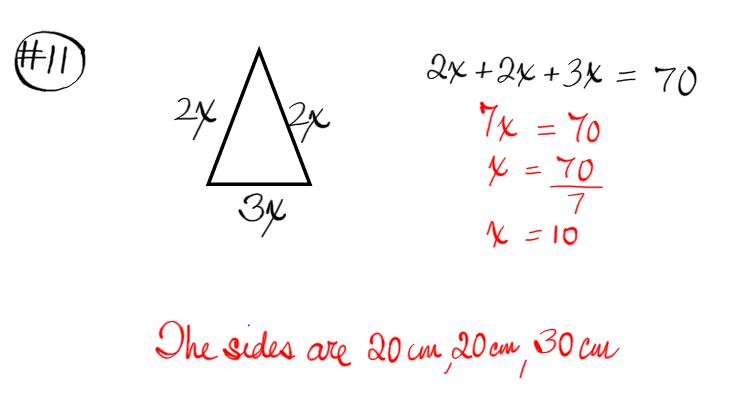 #11
2x + 2x + 3x = 70
2x 2x
3x
7x = 70
x = 70
7
x = 10
The sides are 20 cm, 20 cm, 30 cm